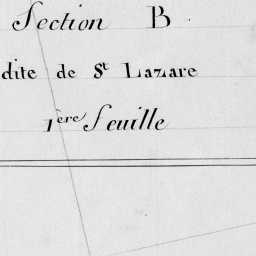 Section B.
dite de St Lazare
1ère Feuille